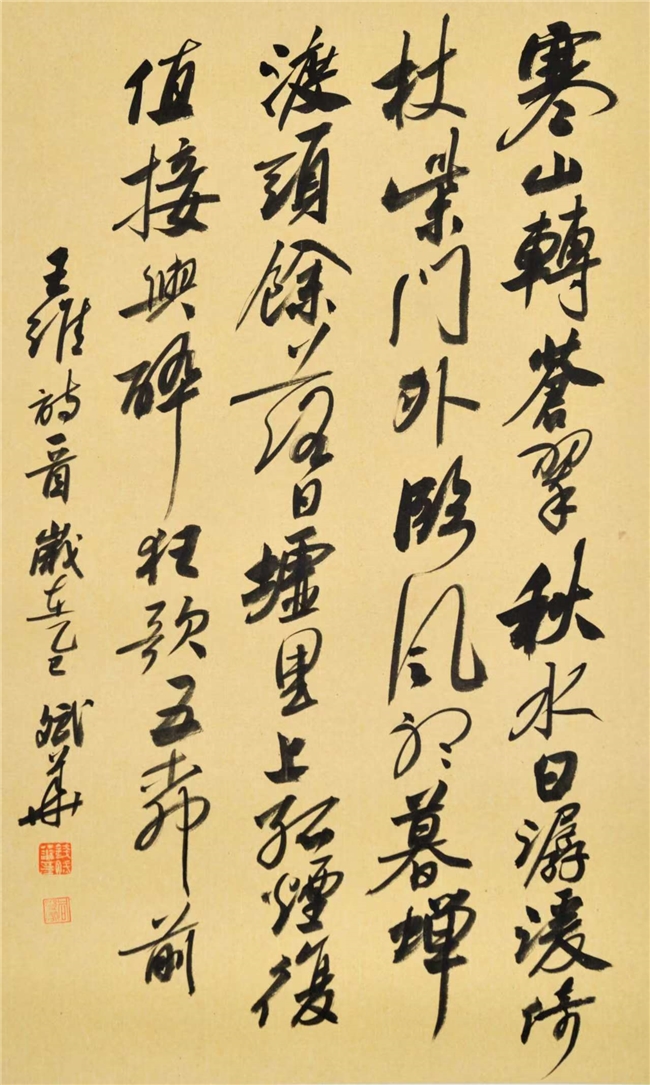 寒山轉蒼翠秋水日潺湲倚
杖柴門外臨風聽暮蟬
渡頭餘落日墟里上孤煙復
值接輿醉狂歌五柳前
王維詩一首歲在乙巳斌華